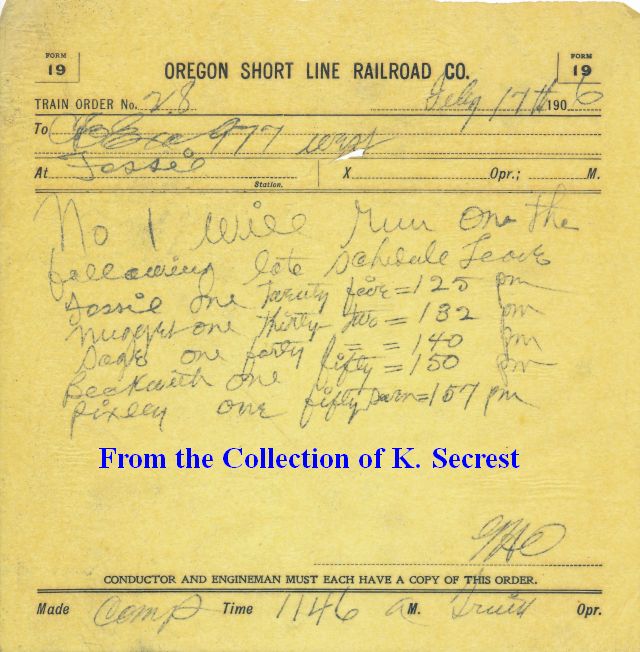 FORM 19
FORM 19
OREGON SHORT LINE RAILROAD CO.
TRAIN ORDER No. 28 Feby 17th 1906
To C&E Exa 977 west
At Fossil Station. X Opr.; M.
No 1 will run on the
following late schedule Leave
Fossil one twenty five = 125 pm
Nugget one thirty two = 132 pm
Sage one forty = = 140 pm
Beckwith one fifty = 150 pm
Pixley one fifty seven = 157 pm
From the Collection of K. Secrest
CONDUCTOR AND ENGINEMAN MUST EACH HAVE A COPY OF THIS ORDER.
Made Comp Time 1146 a M. Opr.